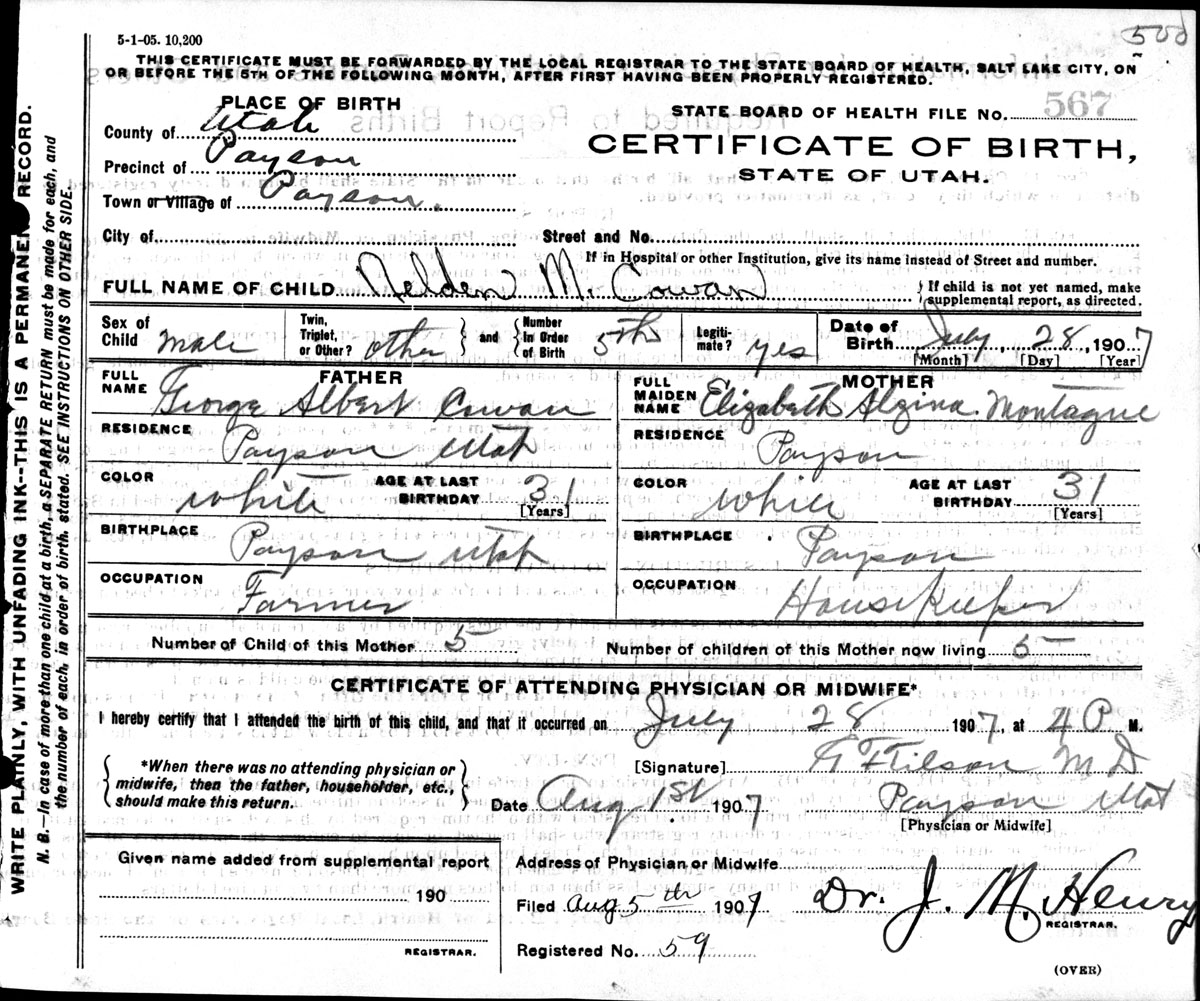 500
5-1-05. 10,200
THIS CERTIFICATE MUST BE FORWARDED BY THE LOCAL REGISTRAR TO THE STATE BOARD OF HEALTH, SALT LAKE CITY, ON
OR BEFORE THE 5TH OF THE FOLLOWING MONTH, AFTER FIRST HAVING BEEN PROPERLY REGISTERED.
PLACE OF BIRTH
County of Utah
Precinct of Payson
Town or Village of Payson.
City of
STATE BOARD OF HEALTH FILE No. 567
CERTIFICATE OF BIRTH,
STATE OF UTAH.
Street and No.
If in Hospital or other Institution, give its name instead of Street and number.
FULL NAME OF CHILD Nelden M. Cowan
If child is not yet named, make
supplemental report, as directed.
Sex of Child male
Twin, Triplet, or Other? other and Number In Order of Birth 5th
Legiti-mate? yes
Date of Birth July, 28, 1907
[Month] [Day] [Year]
FATHER
FULL NAME George Albert Cowan
RESIDENCE Payson Utah
COLOR white AGE AT LAST BIRTHDAY 31 [Years]
BIRTHPLACE Payson Utah
OCCUPATION Farmer
MOTHER
FULL MAIDEN NAME Elizabeth Alzina Montague
RESIDENCE Payson
COLOR White AGE AT LAST BIRTHDAY 31 [Years]
BIRTHPLACE Payson
OCCUPATION Housekeeper
Number of Child of this Mother 5 Number of children of this Mother now living 5
CERTIFICATE OF ATTENDING PHYSICIAN OR MIDWIFE*
I hereby certify that I attended the birth of this child, and that it occurred on July 28 1907, at 4 P M.
*When there was no attending physician or
midwife, then the father, householder, etc.,
should make this return.
[Signature] Tilson M D
Date Aug. 1st 1907 Payson Utah
[Physician or Midwife]
Given name added from supplemental report
190
REGISTRAR.
Address of Physician or Midwife
Filed Aug 5th 1907 Dr. J. M. Henry
REGISTRAR.
Registered No. 59
(OVER)
WRITE PLAINLY, WITH UNFADING INK--THIS IS A PERMANENT RECORD.
N. B.—In case of more than one child at a birth, a SEPARATE RETURN must be made for each, and
the number of each, in order of birth, stated. SEE INSTRUCTIONS ON OTHER SIDE.